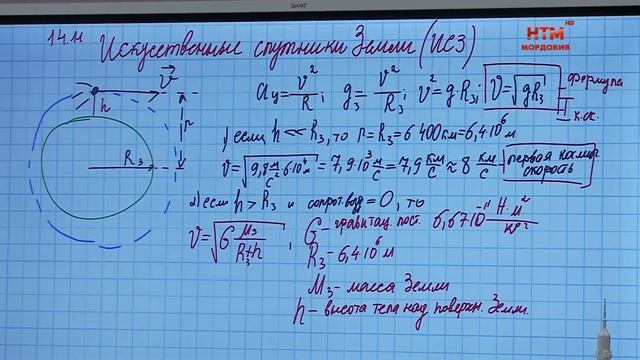 14.11
Искусственные спутники Земли (ИСЗ)
НТМ HD
МОРДОВИЯ
v
h
r
R₃
aц = v²/R; g₃ = v²/R₃; v² = g·R₃; v = √(gR₃) формула
1) если h ≪ R₃, то r = R₃ = 6 400 км = 6,4·10⁶ м
v = √(9,8 м/с² · 6·10⁶ м) = 7,9·10³ м/с = 7,9 км/с ≈ 8 км/с первая косми скорость
2) если h > R₃ и сопрот. возд = 0, то
v = √(G M₃/(R₃+h)), G – гравитац. пост. 6,67·10⁻¹¹ Н·м²/кг²
R₃ – 6,4·10⁶ м
M₃ – масса Земли
h – высота тела над поверхн. Земли.